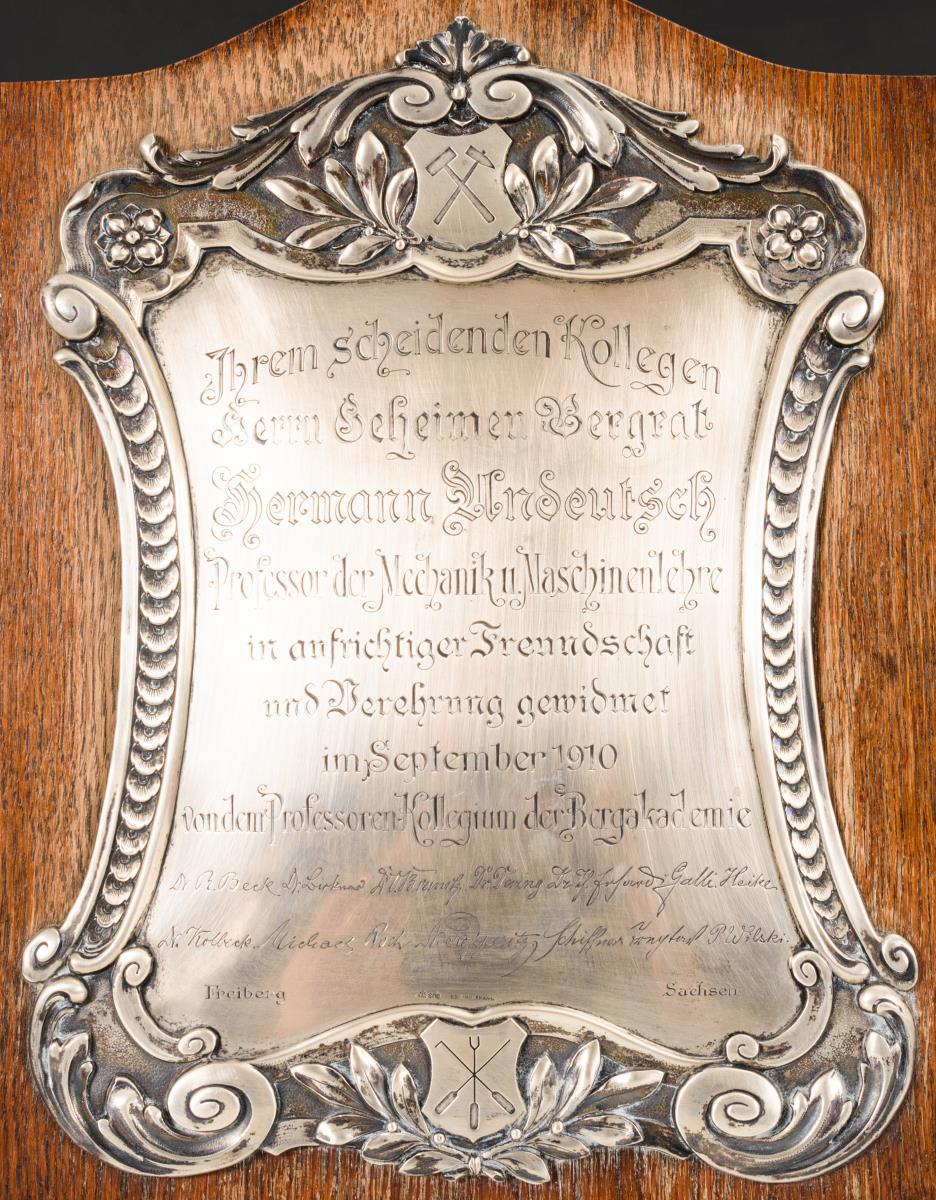 Ihrem scheidenden Kollegen
Herrn Geheimen Bergrat
Hermann Undeutsch
Professor der Mechanik u. Maschinenlehre
in aufrichtiger Freundschaft
und Verehrung gewidmet
im September 1910
von dem Professoren-Kollegium der Bergakademie
Dr R. Beck Dr. Th. Erhard Galli Heike
Dr. Kolbeck Michael Schiffner P. Wilski.
Freiberg Sachsen
800